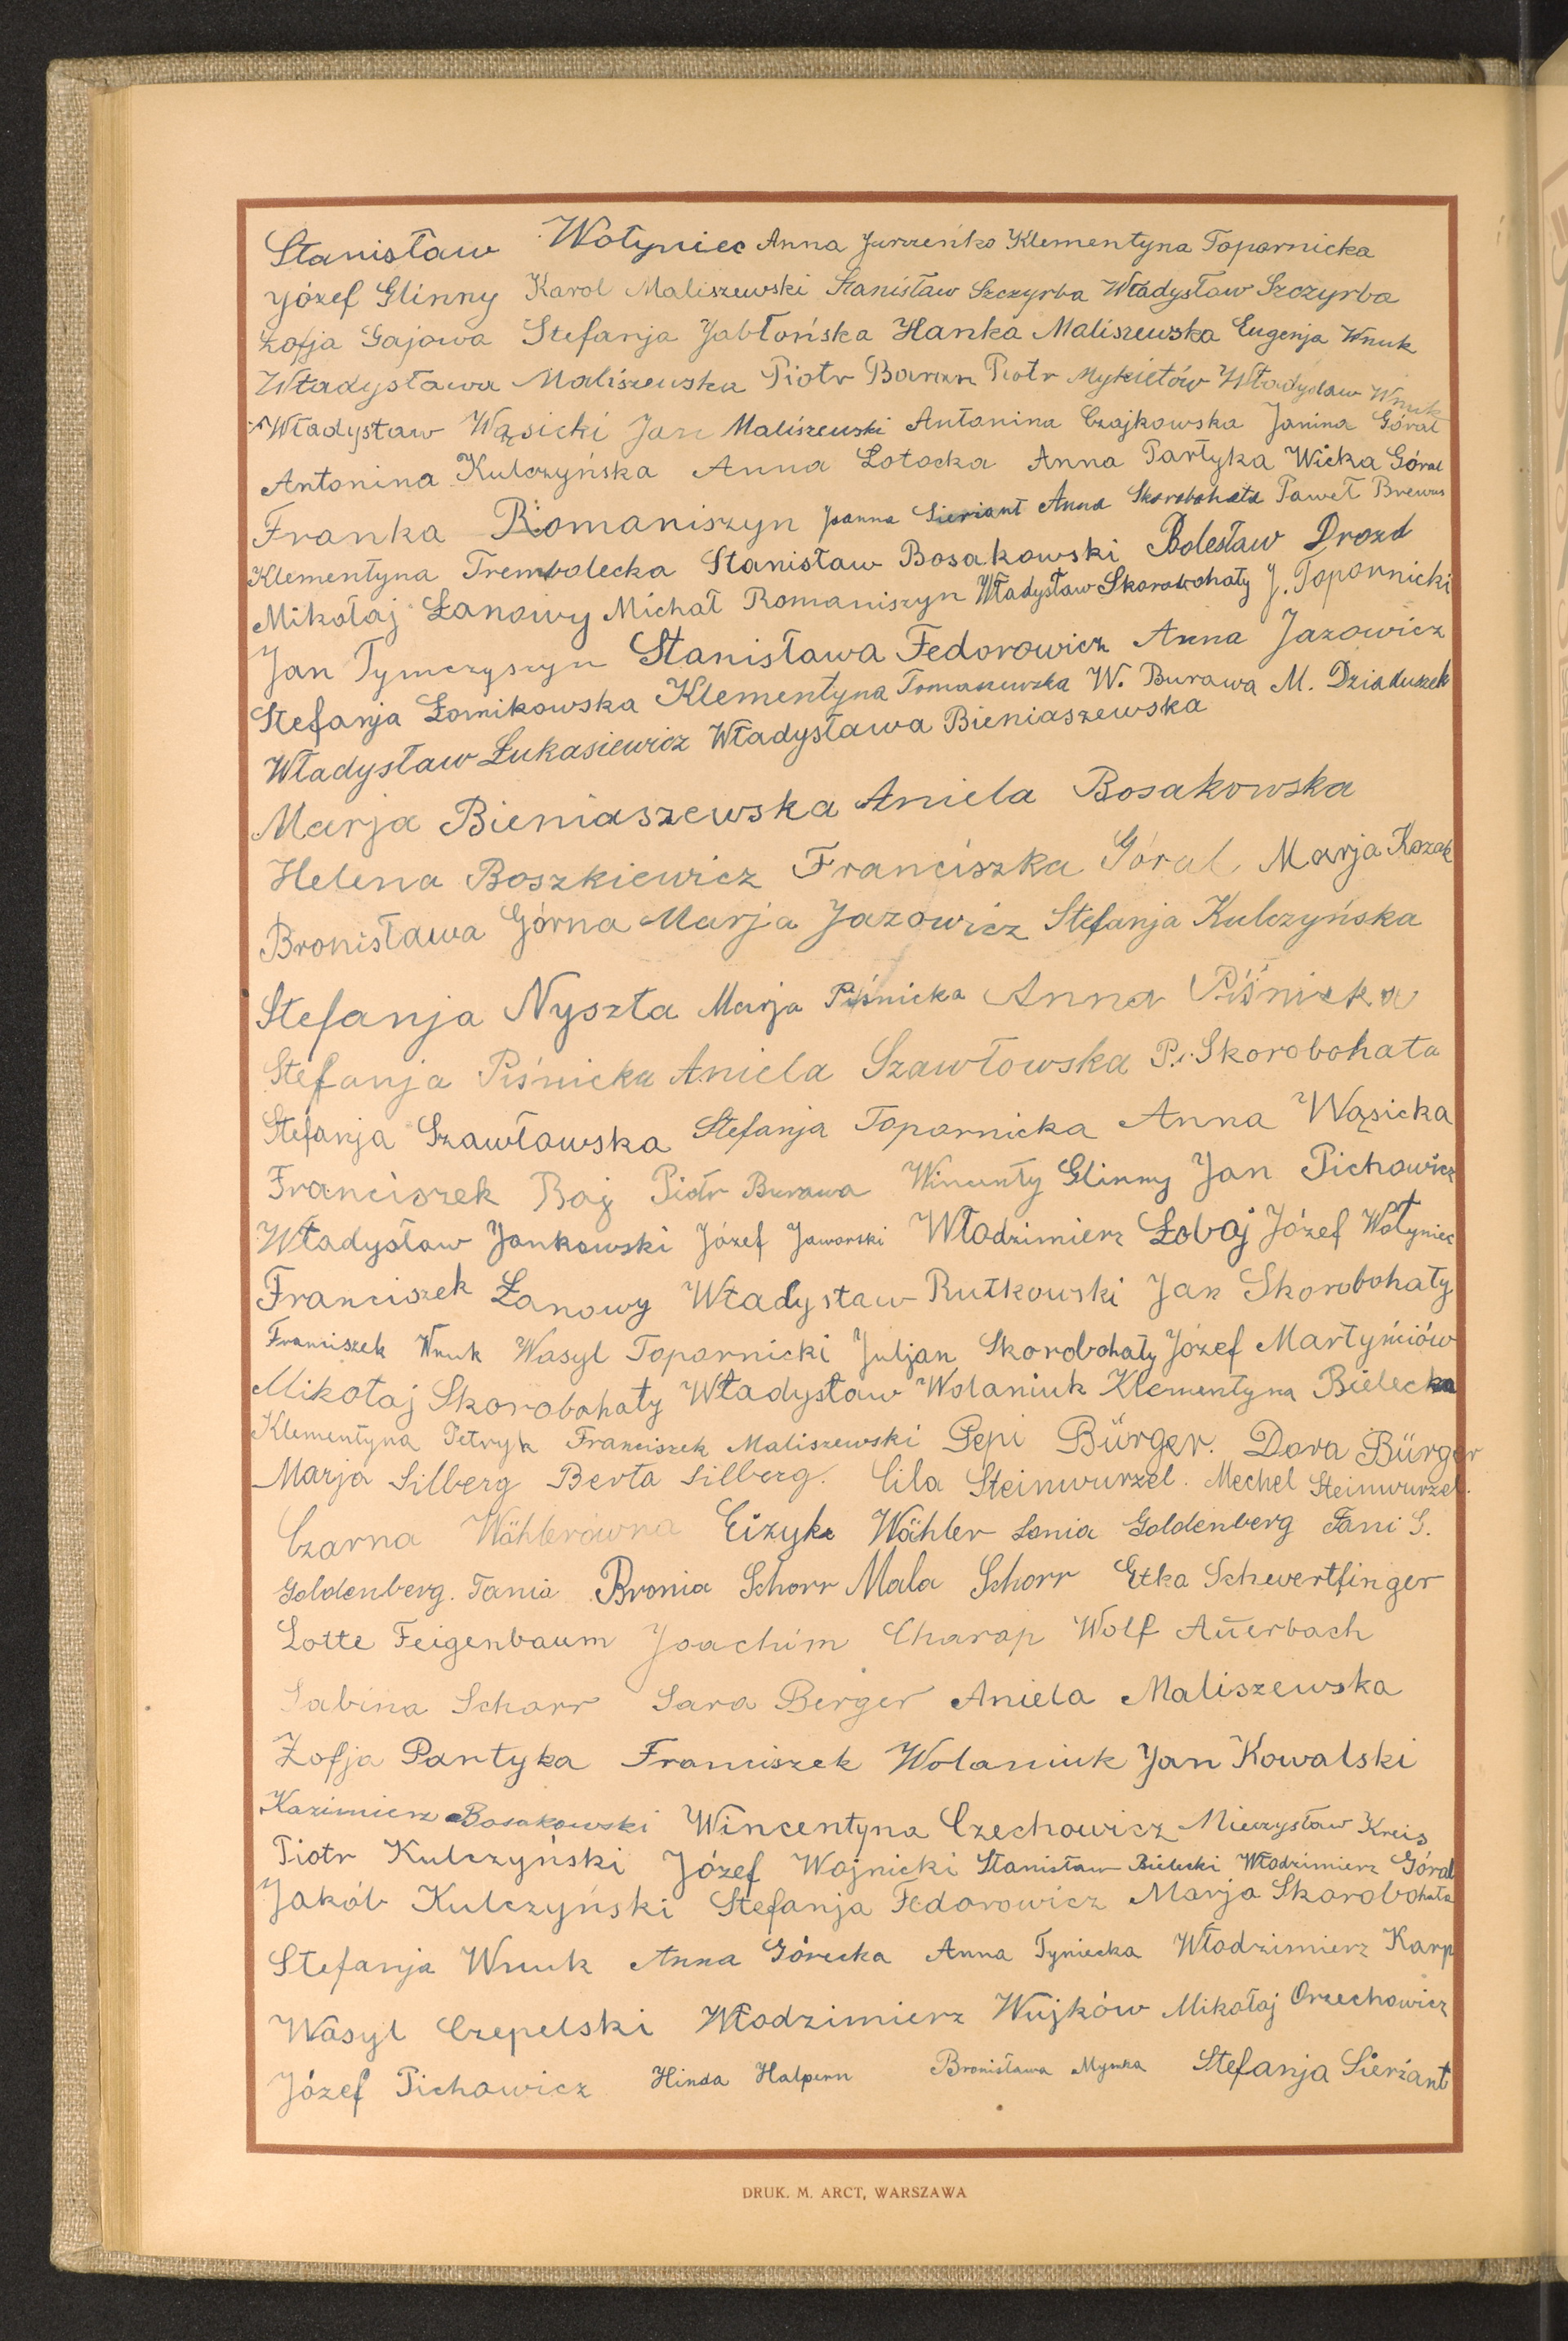 Stanisław Wołyniec Anna Jurzeńko Klementyna Topornicka
Józef Glinny Karol Maliszewski Stanisław Szczyrba Władysław Szczyrba
Zofja Gajowa Stefanja Jabłońska Hanka Maliszewska Eugenja Wnuk
Władysława Maliszewska Piotr Baran Piotr Mykietów Władysław Wnuk
Władysław Wąsicki Jan Maliszewski Antonina Czajkowska Janina Góral
Antonina Kulczyńska Anna Łotocka Anna Partyka Wicka Góral
Franka Romaniszyn Joanna Sierżant Anna Skorobohata Paweł Brewus
Klementyna Trembolecka Stanisław Bosakowski Bolesław Drozd
Mikołaj Łanowy Michał Romaniszyn Władysław Skorobohaty J. Topornicki
Jan Tymczyszyn Stanisława Fedorowicz Anna Jazowicz
Stefanja Łomikowska Klementyna Tomaszewska W. Burawa M. Dziaduszek
Władysław Łukasiewicz Władysława Bieniaszewska
Marja Bieniaszewska Aniela Bosakowska
Helena Boszkiewicz Franciszka Góral, Marja Kozak
Bronisława Górna Marja Jazowicz Stefanja Kulczyńska
Stefanja Nyszta Marja Piśnicka Anna Piśnicka
Stefanja Piśnicka Aniela Szawłowska P. Skorobohata
Stefanja Szawłowska Stefanja Topornicka Anna Wąsicka
Franciszek Baj Piotr Burawa Wincenty Glinny Jan Pichowicz
Władysław Jankowski Józef Jaworski Włodzimierz Łobaj Józef Wołyniec
Franciszek Łanowy Władysław Rutkowski Jan Skorobohaty
Franciszek Wnuk Wasyl Topornicki Juljan Skorobohaty Józef Martyńciów
Mikołaj Skorobohaty Władysław Wolaniuk Klementyna Bielecka
Klementyna Petryk Franciszek Maliszewski Pepi Bürger. Dora Bürger
Marja Silberg Berta Silberg. Cila Steinwurzel. Mechel Steinwurzel.
Czarna Wöhlerówna Eizyk Wöhler Lonia Goldenberg Fani G.
Goldenberg. Tania Bronia Schorr Mala Schorr Etka Schwertfinger
Lotte Feigenbaum Joachim Charap Wolf Auerbach
Sabina Schorr Sara Berger Aniela Maliszewska
Zofja Partyka Franciszek Wolaniuk Jan Kowalski
Kazimierz Bosakowski Wincentyna Czechowicz Mieczysław Kreis
Piotr Kulczyński Józef Wojnicki Stanisław Bielecki Włodzimierz Góral
Jakób Kulczyński Stefanja Fedorowicz Marja Skorobohata
Stefanja Wnuk Anna Górecka Anna Tyniecka Włodzimierz Karp
Wasyl Czepelski Włodzimierz Wujków Mikołaj Orzechowicz
Józef Pichowicz Hinda Halpern Bronisława Stefanja Sierżant
DRUK. M. ARCT, WARSZAWA